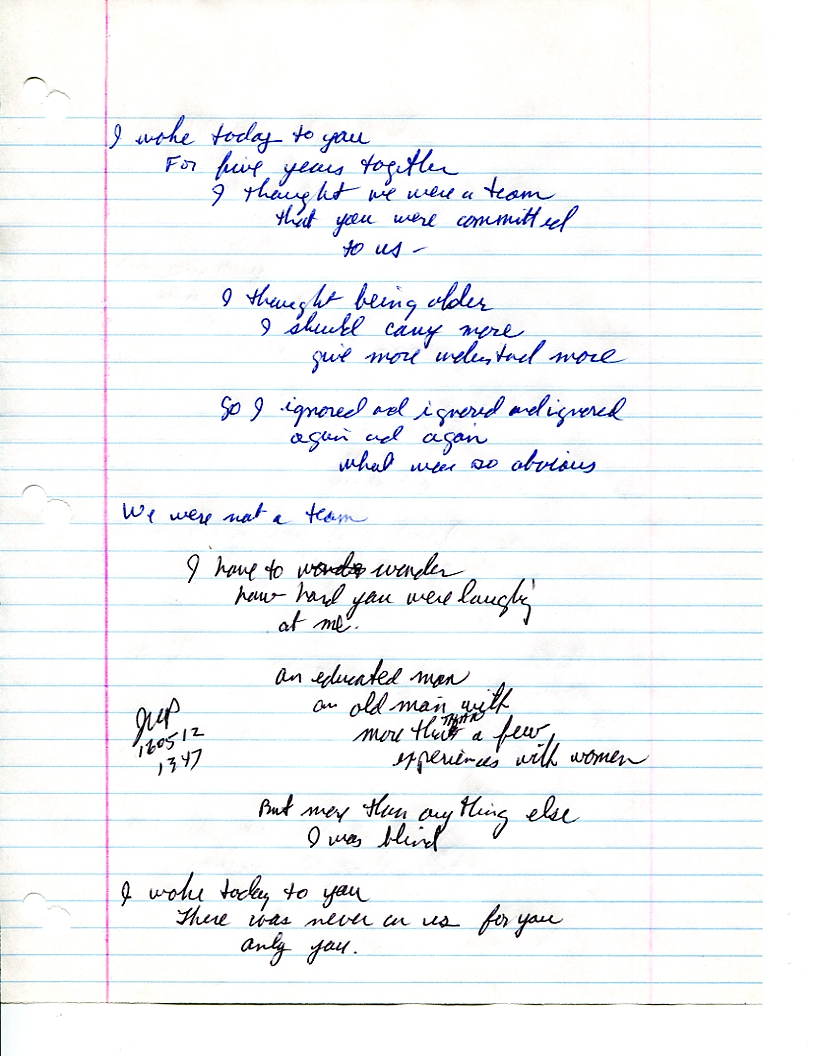 I woke today to you
For five years together
I thought we were a team
that you were committed
to us -
I thought being older
I should carry more
give more understand more
So I ignored and ignored and ignored
again and again
what was so obvious
We were not a team
I have to wonder wonder
how hard you were laughing
at me.
an educated man
an old man with
more than THAN a few
experiences with women
JWP
120512
1347
But more than anything else
I was blind
I woke today to you
There was never an us for you
only you.